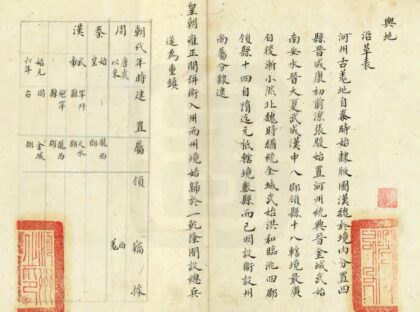 輿地
沿革表
河州古羌地自秦時始隸版圖漢魏於境內分置四
縣晉咸康初前涼張駿始置河州統興晉金城武始
南安永晉大夏武威漢中八郡領縣十八轄境最廣
自後漸小然北魏時猶統金城武始洪和臨洮四郡
領縣十四自隋迄元祇轄境叁縣而已明設衛設州
尚屬分隸逮
皇朝雍正間併衛入州而州境始歸於一乾隆間設總兵
遂為重鎮
朝代年時建置屬領竊據
周
秦始皇 隴西郡
漢武帝
始元六年
天水郡
金城郡
西羌